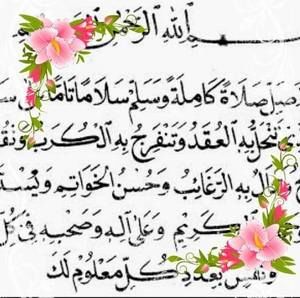 ـم اللهِ الرَّحْمٰنِ
صَلِّ صَلَاةً كَامِلَةً وَسَلِّمْ سَلَامًا تَامًّا
تَنْحَلُّ بِهِ الْعُقَدُ وَتَنْفَرِجُ بِهِ الْكُرَبُ وَتُقْـ
ـالُ بِهِ الرَّغَائِبُ وَحُسْنُ الْخَوَاتِمِ وَيُسْتَـ
ـكَرِيمِ وَعَلَى آلِهِ وَصَحْبِهِ فِي كُلِّ
وَنَفَسٍ بِعَدَدِ كُلِّ مَعْلُومٍ لَكَ